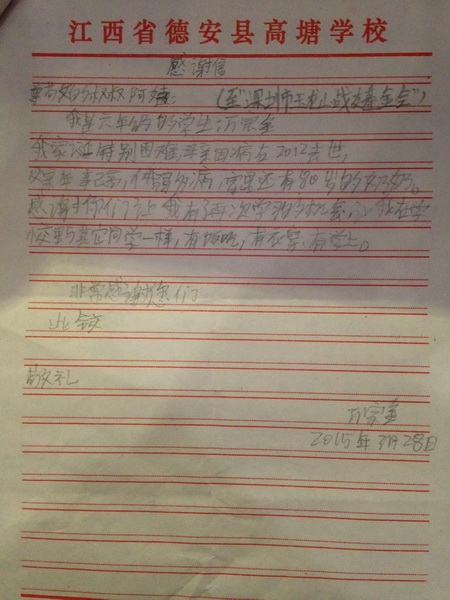 江西省德安县高塘学校
感谢信
尊敬的叔叔阿姨：（至"深圳市玉龙山战友基金会"）
我是六年级的学生万
我家证特别困难 因病在2012去世，
父亲年事已高，体弱多病，家里还有80岁的奶奶。
感谢你们让我有再次学习的机会，让我在学
校里与其它同学一样，有饭吃，有衣穿，有学上。
非常感谢您们
此致
敬礼
万家金
2015年3月28日